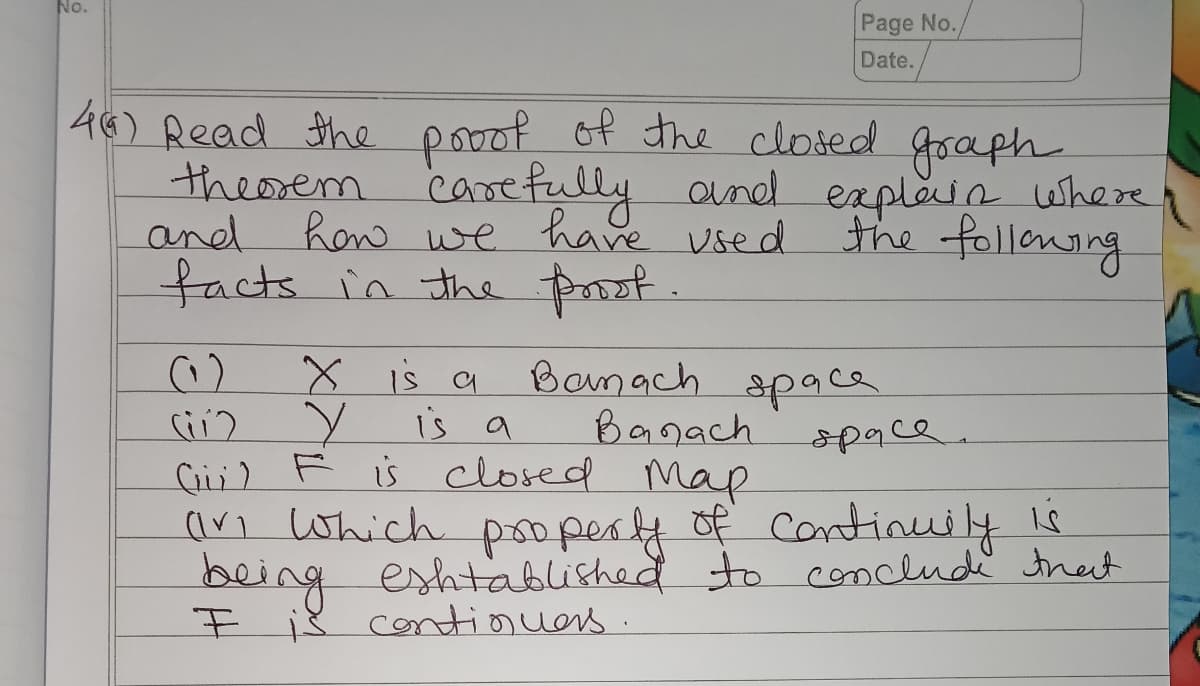 No.
Page No.
Date.
4(a) Read the proof of the closed graph
theorem carefully and explain where
and how we have used the following
facts in the proof.
(i) X is a Banach space
(ii) Y is a Banach space.
(iii) F is closed Map
(iv) Which property of Continuily is
being eshtablished to conclude that
F is continuous.